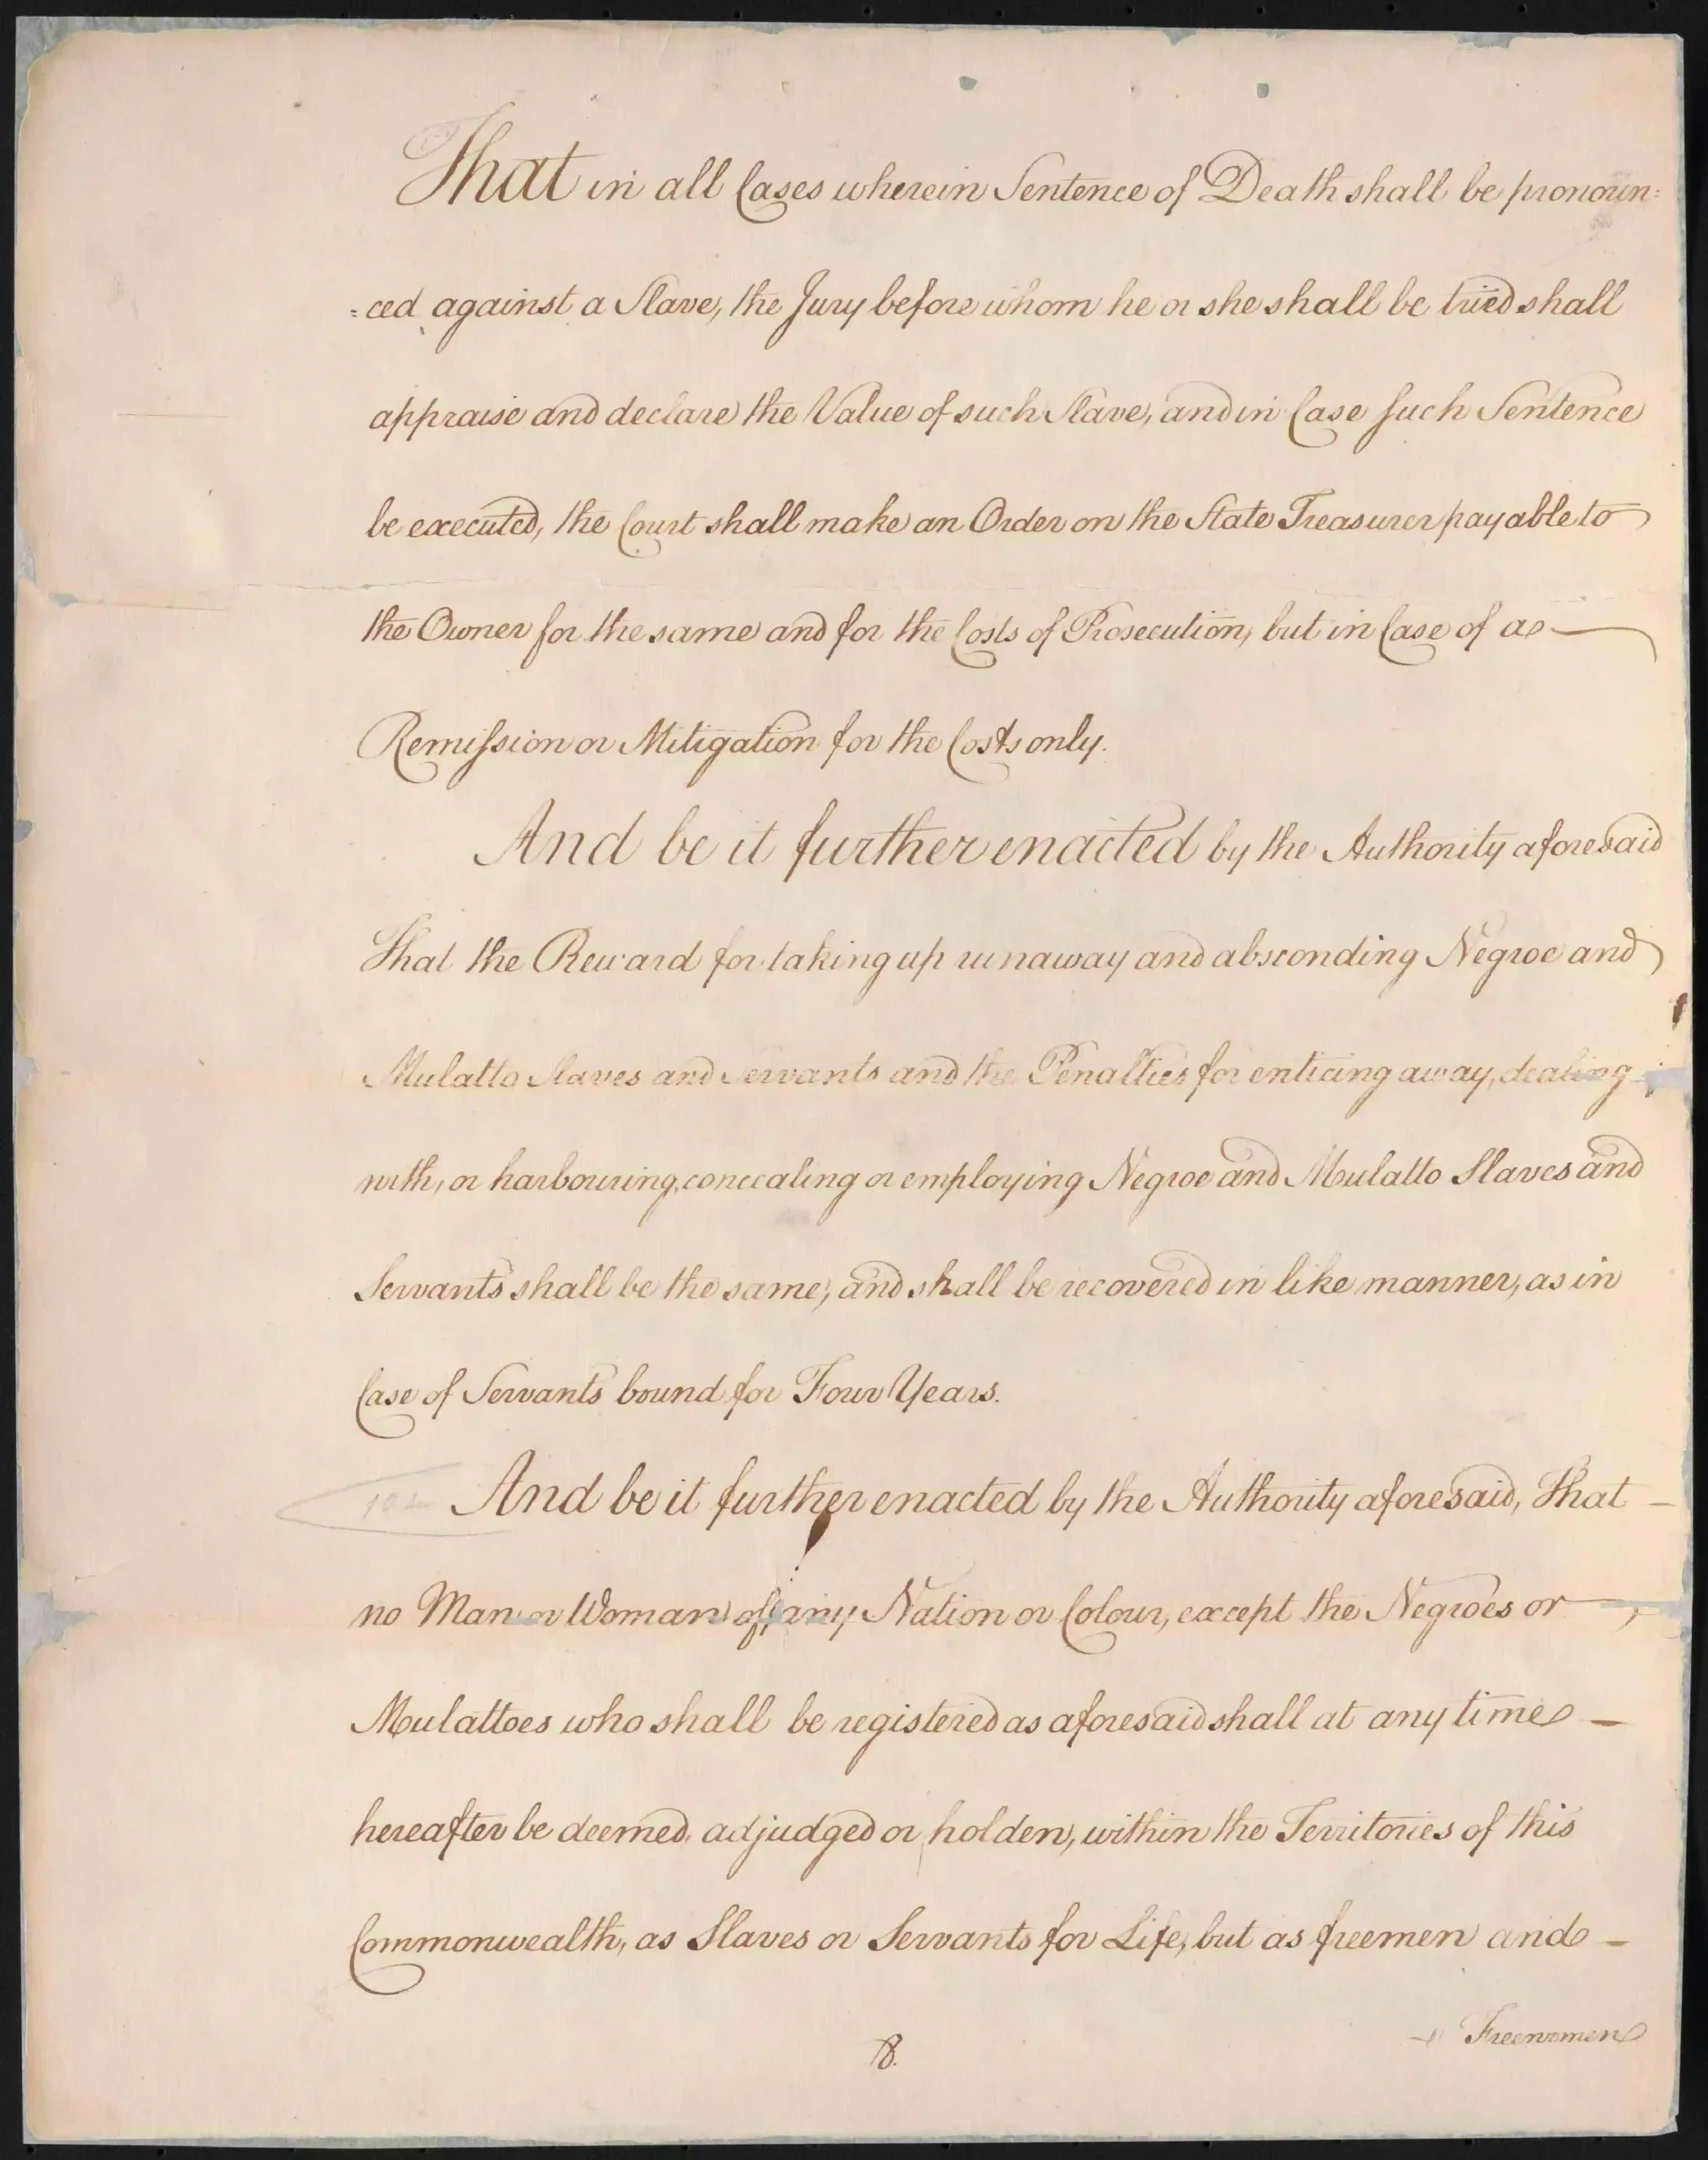 That in all Cases wherein Sentence of Death shall be pronoun=
=ced against a Slave, the Jury before whom he or she shall be tried shall
appraise and declare the Value of such Slave, and in Case such Sentence
be executed, the Court shall make an Order on the State Treasurer payable to
the Owner for the same and for the Costs of Prosecution, but in Case of a
Remission or Mitigation for the Costs only.
And be it further enacted by the Authority aforesaid
That the Reward for taking up runaway and absconding Negroe and
Mulatto Slaves and Servants and the Penalties for enticing away, dealing
with, or harbouring, concealing or employing Negroe and Mulatto Slaves and
Servants shall be the same, and shall be recovered in like manner, as in
Case of Servants bound for Four Years.
And be it further enacted by the Authority aforesaid, That —
no Man or Woman of any Nation or Colour, except the Negroes or
Mulattoes who shall be registered as aforesaid shall at any time —
hereafter be deemed, adjudged or holden, within the Territories of this
Commonwealth, as Slaves or Servants for Life, but as freemen and —
Freewomen
8.